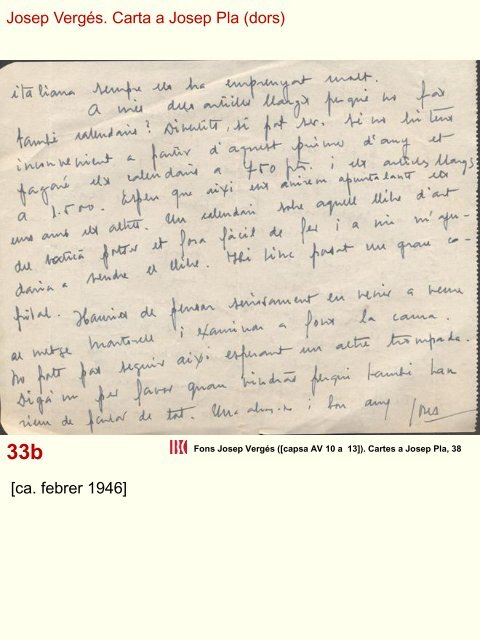 Josep Vergés. Carta a Josep Pla (dors)
italiana sempre els ha emprenyat molt.
A més dels articles llargs perquè no fas
també calendaris? Divertits, si pot ser. Si no hi tens
inconvenient a partir d'aquest primer d'any et
pagaré els calendaris a 750 pts. i els articles llargs
a 1.500. Espero que així ens anirem apuntalant els
uns amb els altres. Un calendari sobre aquell llibre d'art
del podries fer et fora fàcil de fer i a mi m'aju-
daria a vendre el llibre. Hi tinc posat un gran ca-
pital. Hauries de pensar seriosament en venir a veure
al metge i examinar a fons la cama.
No pots pas seguir així esperant un altre trompada.
Digà'm per favor quan vindràs perquè també hau-
riem de parlar de tot. Una abraç. i bon any
33b
Fons Josep Vergés ([capsa AV 10 a 13]). Cartes a Josep Pla, 38
[ca. febrer 1946]